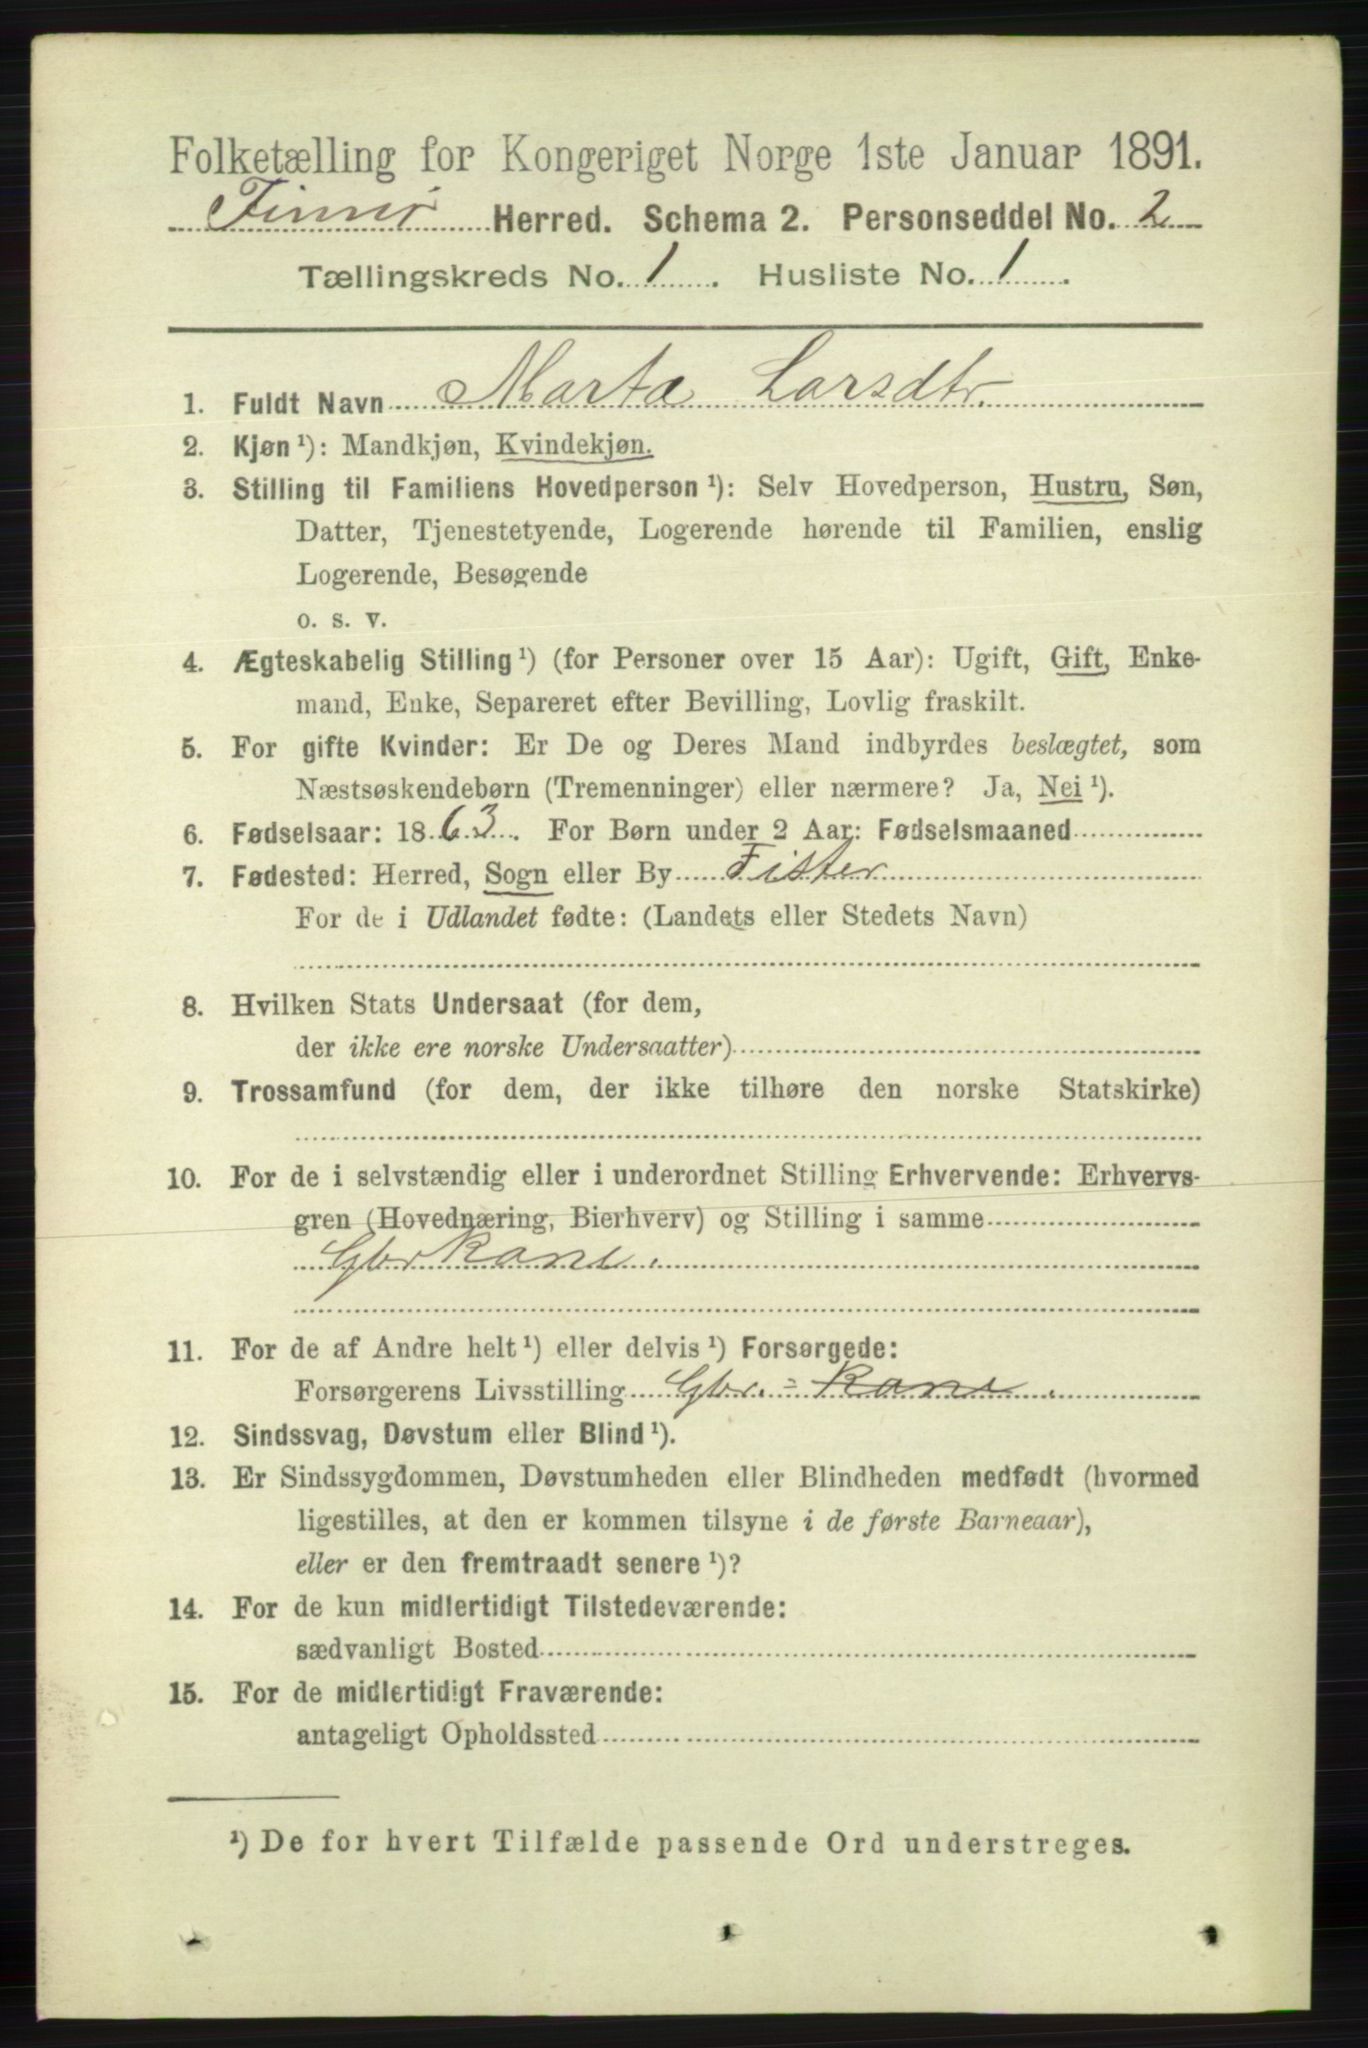 Folketælling for Kongeriget Norge 1ste Januar 1891.
Finnø Herred. Schema 2. Personseddel No. 2
Tællingskreds No. 1. Husliste No. 1.
1. Fuldt Navn Marta Larsdtr.
2. Kjøn¹): Mandkjøn, Kvindekjøn.
3. Stilling til Familiens Hovedperson¹): Selv Hovedperson, Hustru, Søn,
Datter, Tjenestetyende, Logerende hørende til Familien, enslig
Logerende, Besøgende
o. s. v.
4. Ægteskabelig Stilling¹) (for Personer over 15 Aar): Ugift, Gift, Enke-
mand, Enke, Separeret efter Bevilling, Lovlig fraskilt.
5. For gifte Kvinder: Er De og Deres Mand indbyrdes beslægtet, som
Næstsøskendebørn (Tremenninger) eller nærmere? Ja, Nei¹).
6. Fødselsaar: 1863. For Børn under 2 Aar: Fødselsmaaned
7. Fødested: Herred, Sogn eller By Fister
For de i Udlandet fødte: (Landets eller Stedets Navn)
8. Hvilken Stats Undersaat (for dem,
der ikke ere norske Undersaatter)
9. Trossamfund (for dem, der ikke tilhøre den norske Statskirke)
10. For de i selvstændig eller i underordnet Stilling Erhvervende: Erhvervs-
gren (Hovednæring, Bierhverv) og Stilling i samme
Gbrkone.
11. For de af Andre helt¹) eller delvis¹) Forsørgede:
Forsørgerens Livsstilling Gbr.=Kone.
12. Sindssvag, Døvstum eller Blind¹).
13. Er Sindssygdommen, Døvstumheden eller Blindheden medfødt (hvormed
ligestilles, at den er kommen tilsyne i de første Barneaar),
eller er den fremtraadt senere¹)?
14. For de kun midlertidigt Tilstedeværende:
sædvanligt Bosted
15. For de midlertidigt Fraværende:
antageligt Opholdssted
¹) De for hvert Tilfælde passende Ord understreges.